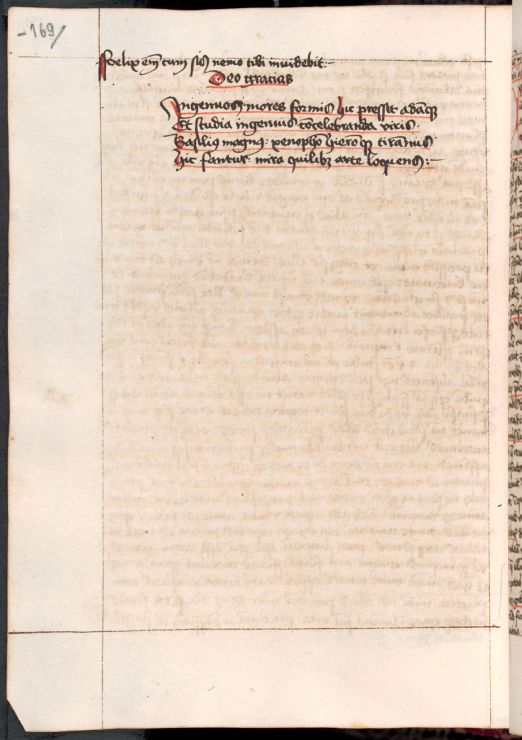 -169/
Felix em̄ cum sis nemo tibi inuidebit :-
Deo gracias
Ingenuos mores formis hic pressit adāꝗ
Et studia ingenuis cōcelebranda viris ·
Basiliꝰ magnꝰ · xenophō hieroꝗ tirānus
hic fantur · mira quilibꝫ arte loquens :-